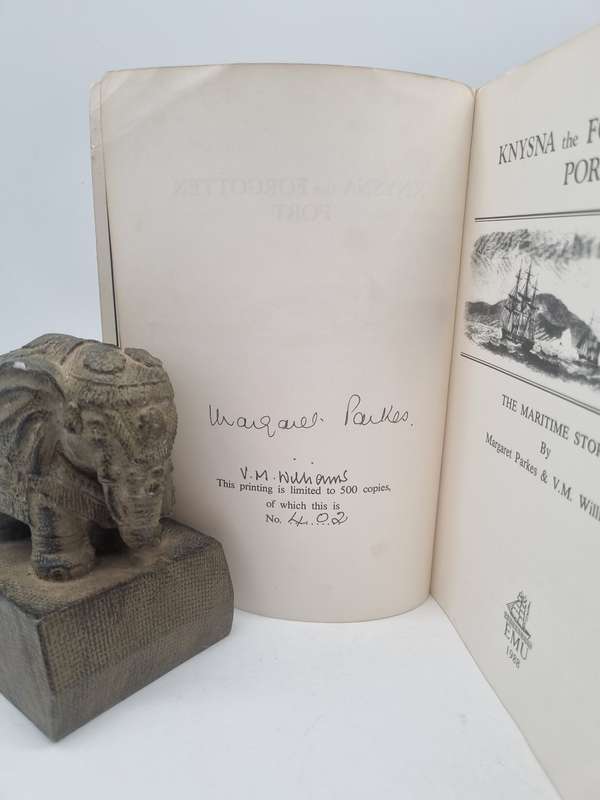 Margaret Parkes.
V.M. Williams
This printing is limited to 500 copies,
of which this is
No. 402
KNYSNA the
POR
THE MARITIME STOR
By
Margaret Parkes & V.M. Will
EMU
1988